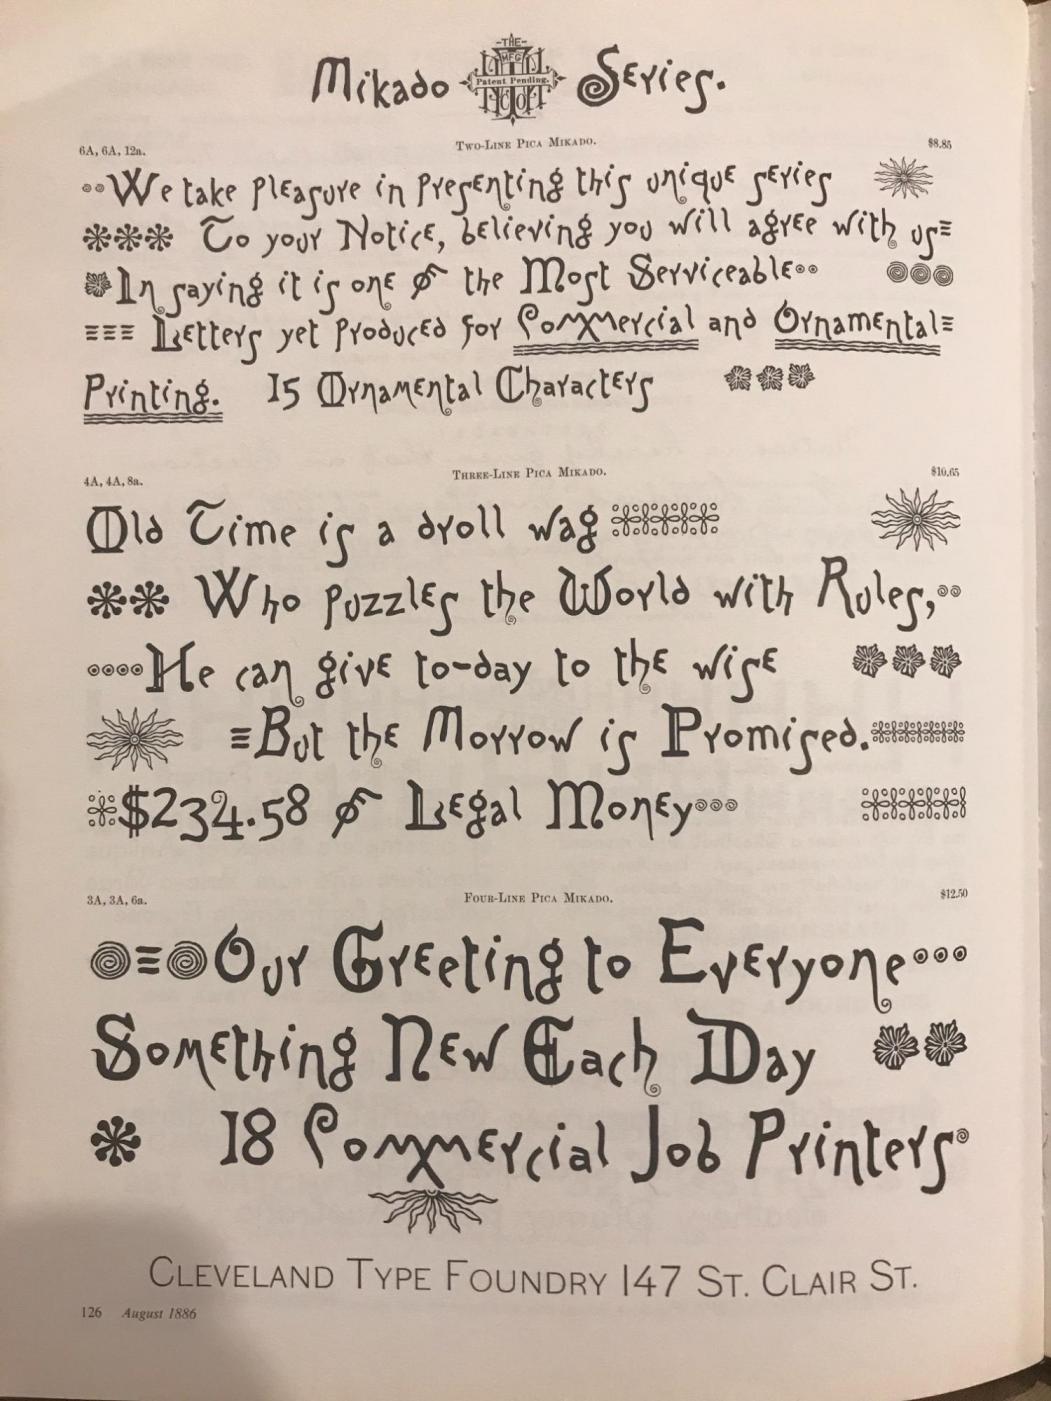 Mikado THE MFG Patent Pending. CO Series.
6A, 6A, 12a. Two-Line Pica Mikado. $8.85
We take pleasure in presenting this unique series
To your Notice, believing you will agree with us
In saying it is one of the Most Serviceable
Letters yet produced for Commercial and Ornamental
Printing. 15 Ornamental Characters
4A, 4A, 8a. Three-Line Pica Mikado. $10.65
Old Time is a droll wag
Who puzzles the World with Rules,
He can give to-day to the wise
But the Morrow is Promised.
$234.58 of Legal Money
3A, 3A, 6a. Four-Line Pica Mikado. $12.50
Our Greeting to Everyone
Something New Each Day
18 Commercial Job Printers
Cleveland Type Foundry 147 St. Clair St.
126 August 1886